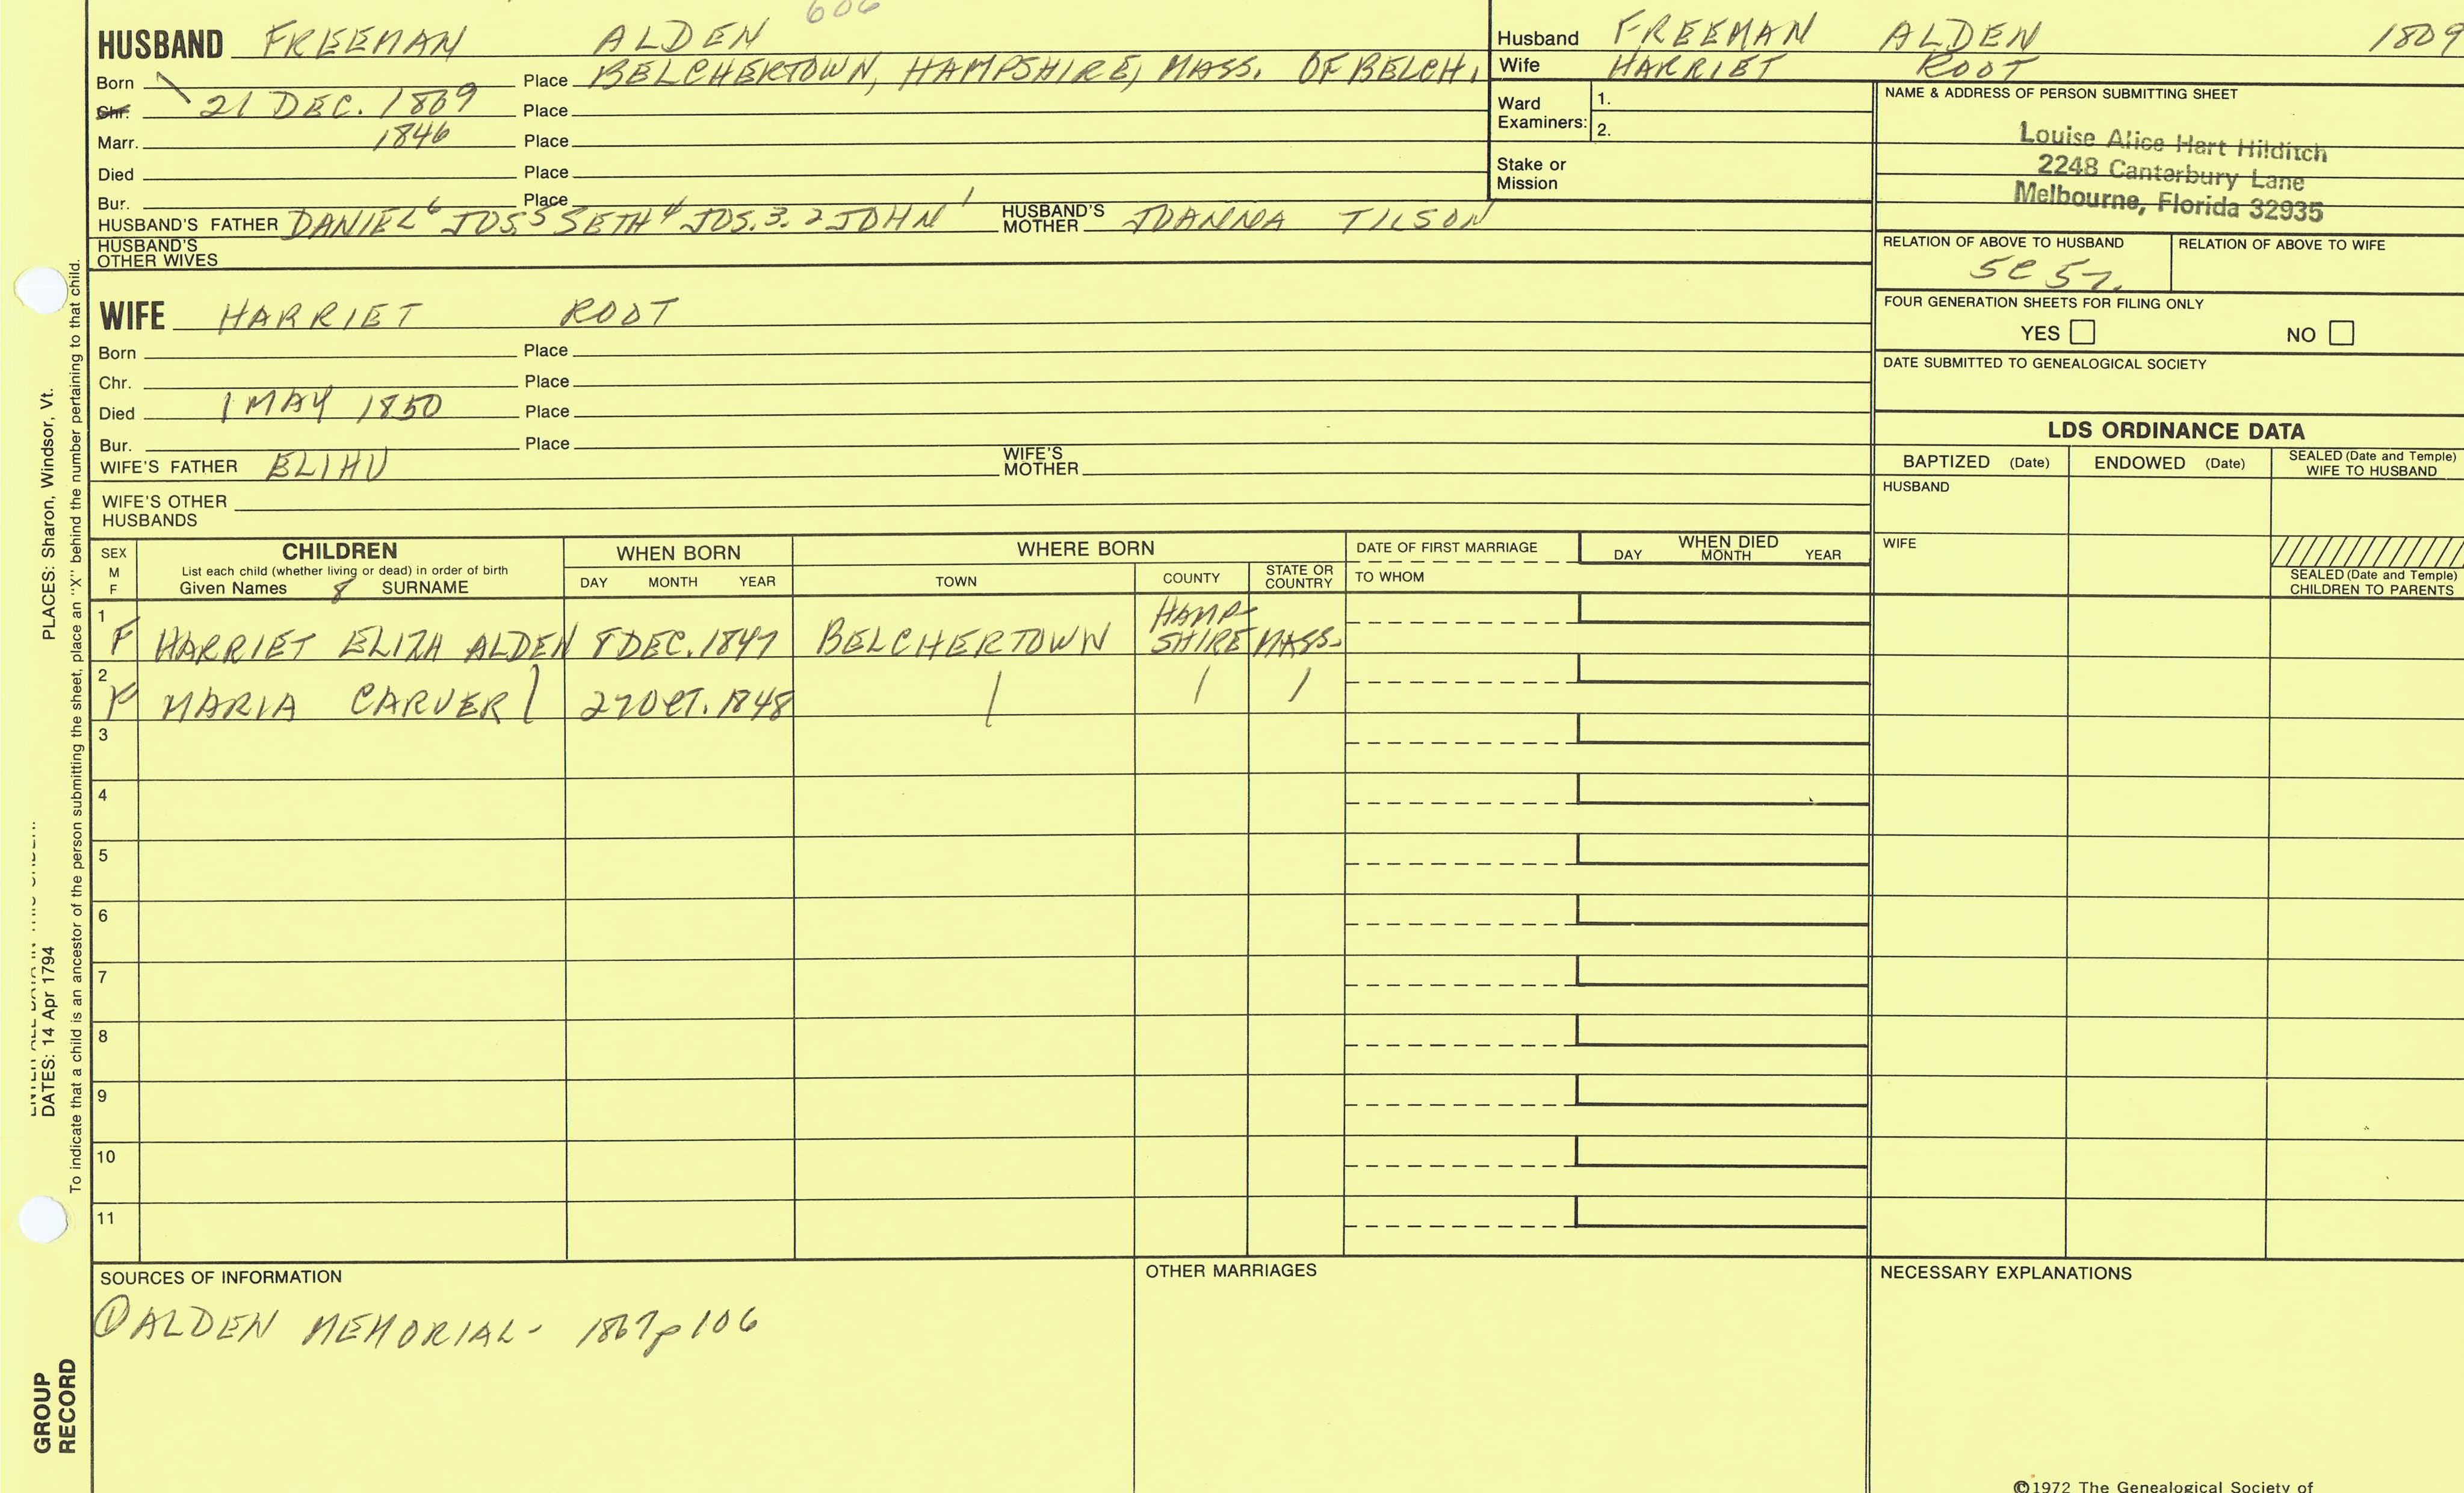 606
HUSBAND FREEMAN ALDEN
Born Place BELCHERTOWN, HAMPSHIRE, MASS. OF BELCH.
Chr. 21 DEC. 1809 Place
Marr. 1846 Place
Died Place
Bur. Place
HUSBAND'S FATHER DANIEL 6 JOS. 5 SETH 4 JOS. 3. 2 JOHN 1 HUSBAND'S MOTHER JOANNA TILSON
HUSBAND'S OTHER WIVES
Husband FREEMAN ALDEN 1809
Wife HARRIET ROOT
Ward Examiners: 1.
2.
Stake or Mission
NAME & ADDRESS OF PERSON SUBMITTING SHEET
Louise Alice Hart Hilditch
2248 Canterbury Lane
Melbourne, Florida 32935
RELATION OF ABOVE TO HUSBAND RELATION OF ABOVE TO WIFE
FOUR GENERATION SHEETS FOR FILING ONLY
YES NO
DATE SUBMITTED TO GENEALOGICAL SOCIETY
WIFE HARRIET ROOT
Born Place
Chr. Place
Died 1 MAY 1850 Place
Bur. Place
WIFE'S FATHER ELIHU WIFE'S MOTHER
WIFE'S OTHER HUSBANDS
LDS ORDINANCE DATA
BAPTIZED (Date) ENDOWED (Date) SEALED (Date and Temple) WIFE TO HUSBAND
HUSBAND
WIFE
SEALED (Date and Temple) CHILDREN TO PARENTS
SEX M F
CHILDREN
List each child (whether living or dead) in order of birth
Given Names 8 SURNAME
WHEN BORN
DAY MONTH YEAR
WHERE BORN
TOWN COUNTY STATE OR COUNTRY
DATE OF FIRST MARRIAGE
TO WHOM
WHEN DIED
DAY MONTH YEAR
1 F HARRIET ELIZA ALDEN 8 DEC. 1847 BELCHERTOWN HAMPSHIRE MASS.
2 F MARIA CARVER 27 OCT. 1848
3
4
5
6
7
8
9
10
11
SOURCES OF INFORMATION
① ALDEN MEMORIAL - 1867 p 106
OTHER MARRIAGES
NECESSARY EXPLANATIONS
©1972 The Genealogical Society of
PLACES: Sharon, Windsor, Vt.
DATES: 14 Apr 1794
To indicate that a child is an ancestor of the person submitting the sheet, place an "X" behind the number pertaining to that child.
GROUP RECORD